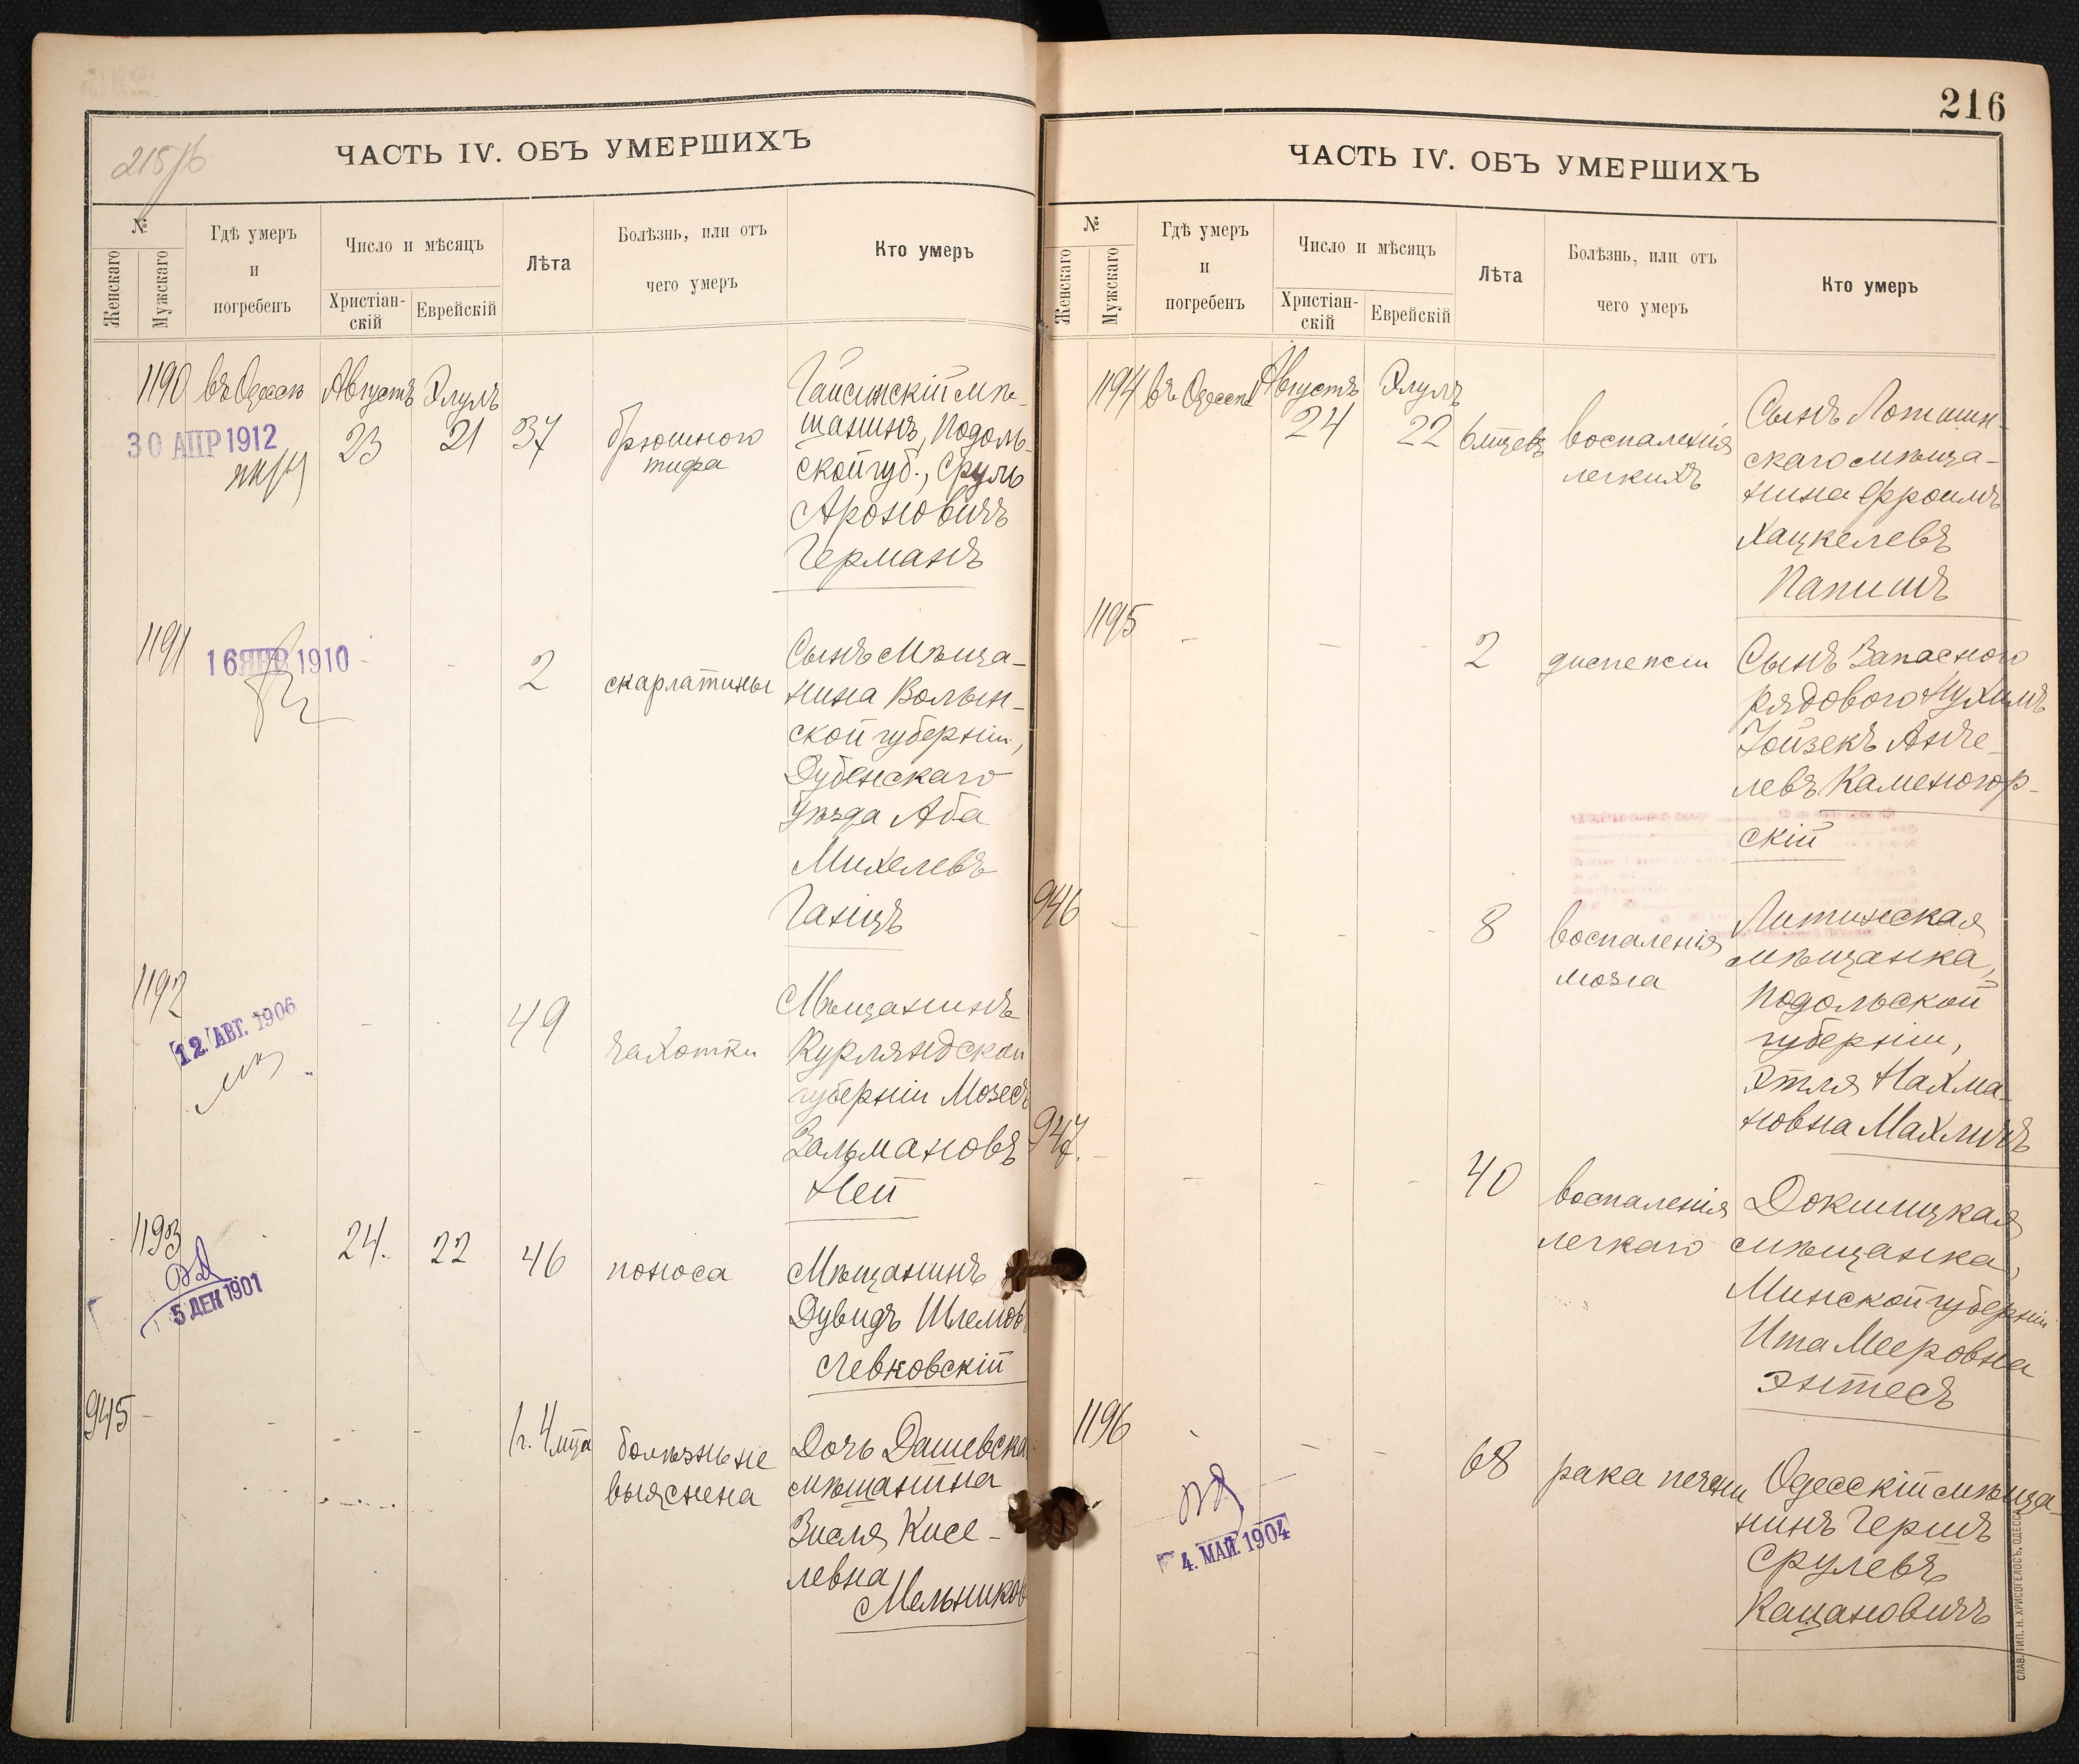 215об
ЧАСТЬ IV. ОБЪ УМЕРШИХЪ
№
Женскаго
Мужскаго
Гдѣ умеръ
и
погребенъ
Число и мѣсяцъ
Христіан-
скій
Еврейскій
Лѣта
Болѣзнь, или отъ
чего умеръ
Кто умеръ
1190
въ Одессѣ
Августъ
Элулъ
23
21
37
брюшного
тифа
Гайсинскій мѣ-
щанинъ, Подоль-
ской губ., Сруль
Ароновичъ
Германъ
30 АПР 1912
1191
-
-
2
скарлатины
Сынъ мѣща-
нина Волын-
ской губерніи,
Дубенскаго
уѣзда Аба
Михелевъ
Ганцъ
16 ЯНВ 1910
1192
-
-
49
чахотки
Мѣщанинъ
Курляндской
губерніи Мозесъ
Зальмановъ
Ней
12. АВГ. 1906
1193
24.
22
46
поноса
Мѣщанинъ
Дувидъ Шлемовъ
Левковскій
5 ДЕК 1901
945
-
-
-
1 г. 4 мца
болѣзнь не
выяснена
Дочь Дашевска
мѣщанина
Зисля Кисе-
левна
Мельников
216
ЧАСТЬ IV. ОБЪ УМЕРШИХЪ
№
Женскаго
Мужскаго
Гдѣ умеръ
и
погребенъ
Число и мѣсяцъ
Христіан-
скій
Еврейскій
Лѣта
Болѣзнь, или отъ
чего умеръ
Кто умеръ
1194
въ Одессѣ
Августъ
Элулъ
24
22
6 мцевъ
воспаленія
легкихъ
Сынъ
скаго мѣща-
нина Фроимъ
Хацкелевъ
Папишъ
1195
-
-
-
2
диспепсіи
Сынъ Запасного
рядового Нухимъ
Іойзекъ Анче-
левъ Каменогор-
скій
946
-
-
-
-
8
воспаленія
мозга
Литинская
мѣщанка,
Подольской
губерніи,
Этля Нахма-
новна Махличъ
947.
-
-
-
-
40
воспаленія
легкаго
Докшицкая
мѣщанка,
Минской губерніи
Ита Мееровна
Энтесъ
1196
-
-
68
рака печени
Одесскій мѣща-
нинъ Гершъ
Срулевъ
Кацановичъ
4. МАЙ. 1904
СЛАВ. ТИП. Н. ХРИСОГЕЛОСЪ, ОДЕССА